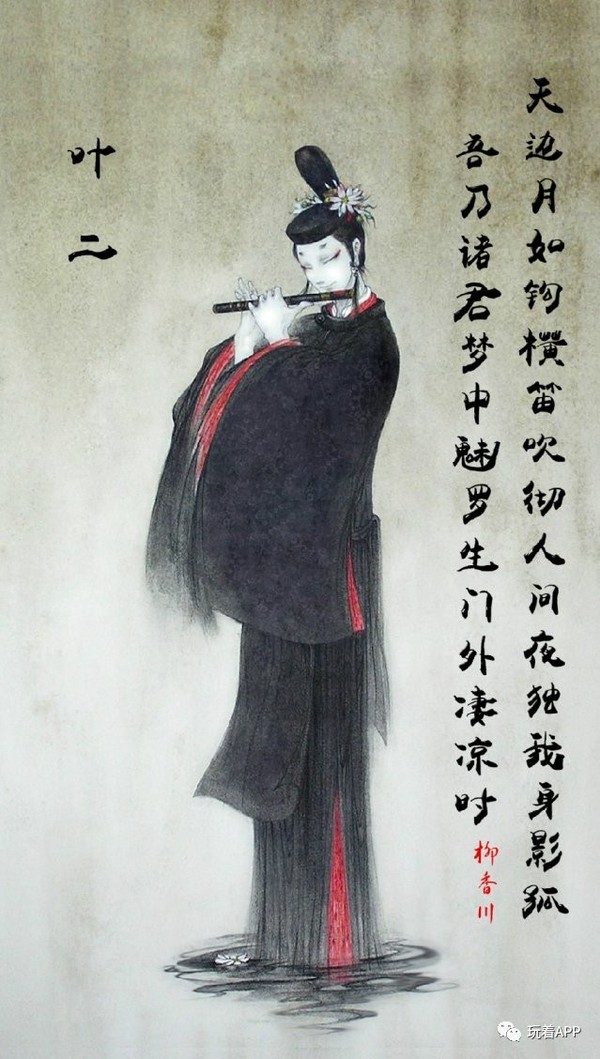 天边月如钩横笛吹彻人间夜独我身影孤
吾乃诸君梦中魅罗生门外凄凉时
柳香川
叶二
玩着APP